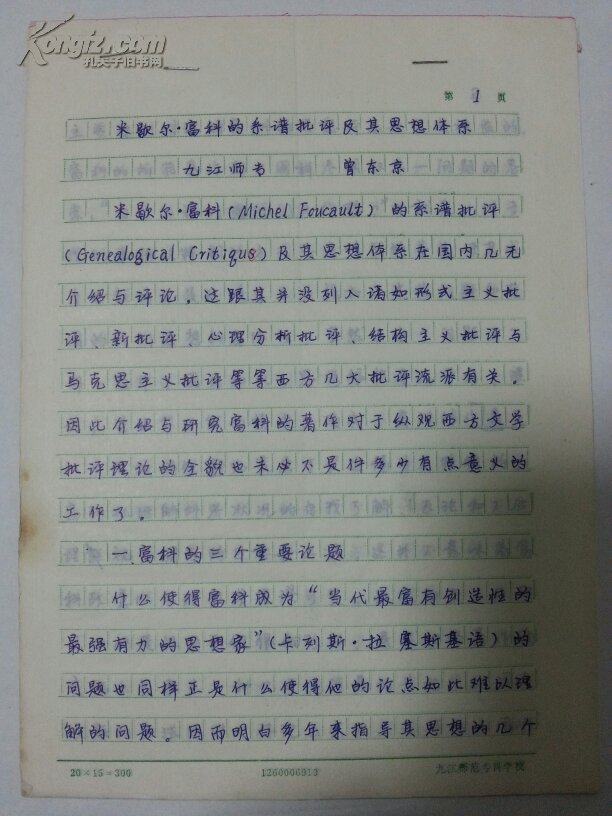 Kongfz.com
孔夫子旧书网
第 1 页
米歇尔·富科的系谱批评及其思想体系
九江师专 曾东京
米歇尔·富科（Michel Foucault）的系谱批评
（Genealogical Critiqus）及其思想体系在国内几无
介绍与评论。这跟其并没列入诸如形式主义批
评、新批评、心理分析批评、结构主义批评与
马克思主义批评等等西方几大批评流派有关。
因此介绍与研究富科的著作对于纵观西方文学
批评理论的全貌也未必不是件多少有点意义的
工作了。
一、富科的三个重要论题
什么使得富科成为“当代最富有创造性的
最强有力的思想家”（卡列斯·拉塞斯基语）的
问题也同样正是什么使得他的论点如此难以理
解的问题。因而明白多年来指导其思想的几个
20×15=300 1260006913 九江师范专科学校